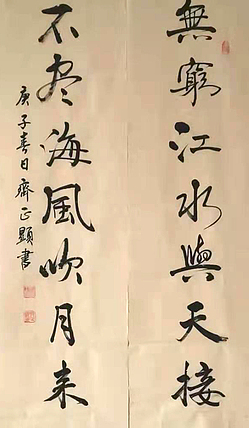 無窮江水與天接
不尽海風吹月来
庚子春日齊正顯書